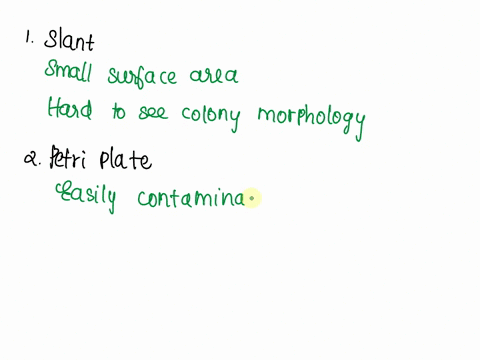 1. Slant
Small surface area
Hard to see colony morphology
2. Petri plate
Easily contamina